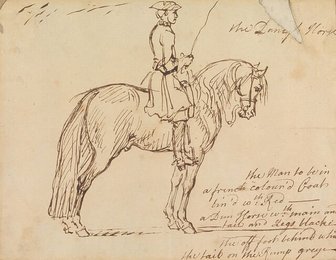 the Danish Horse
the Man to be in
a french colour'd Coat
lin'd wth Red
a Dun Horse wth main and
tail and Legs black
the off foot behind whi
the tail on the Rump greye